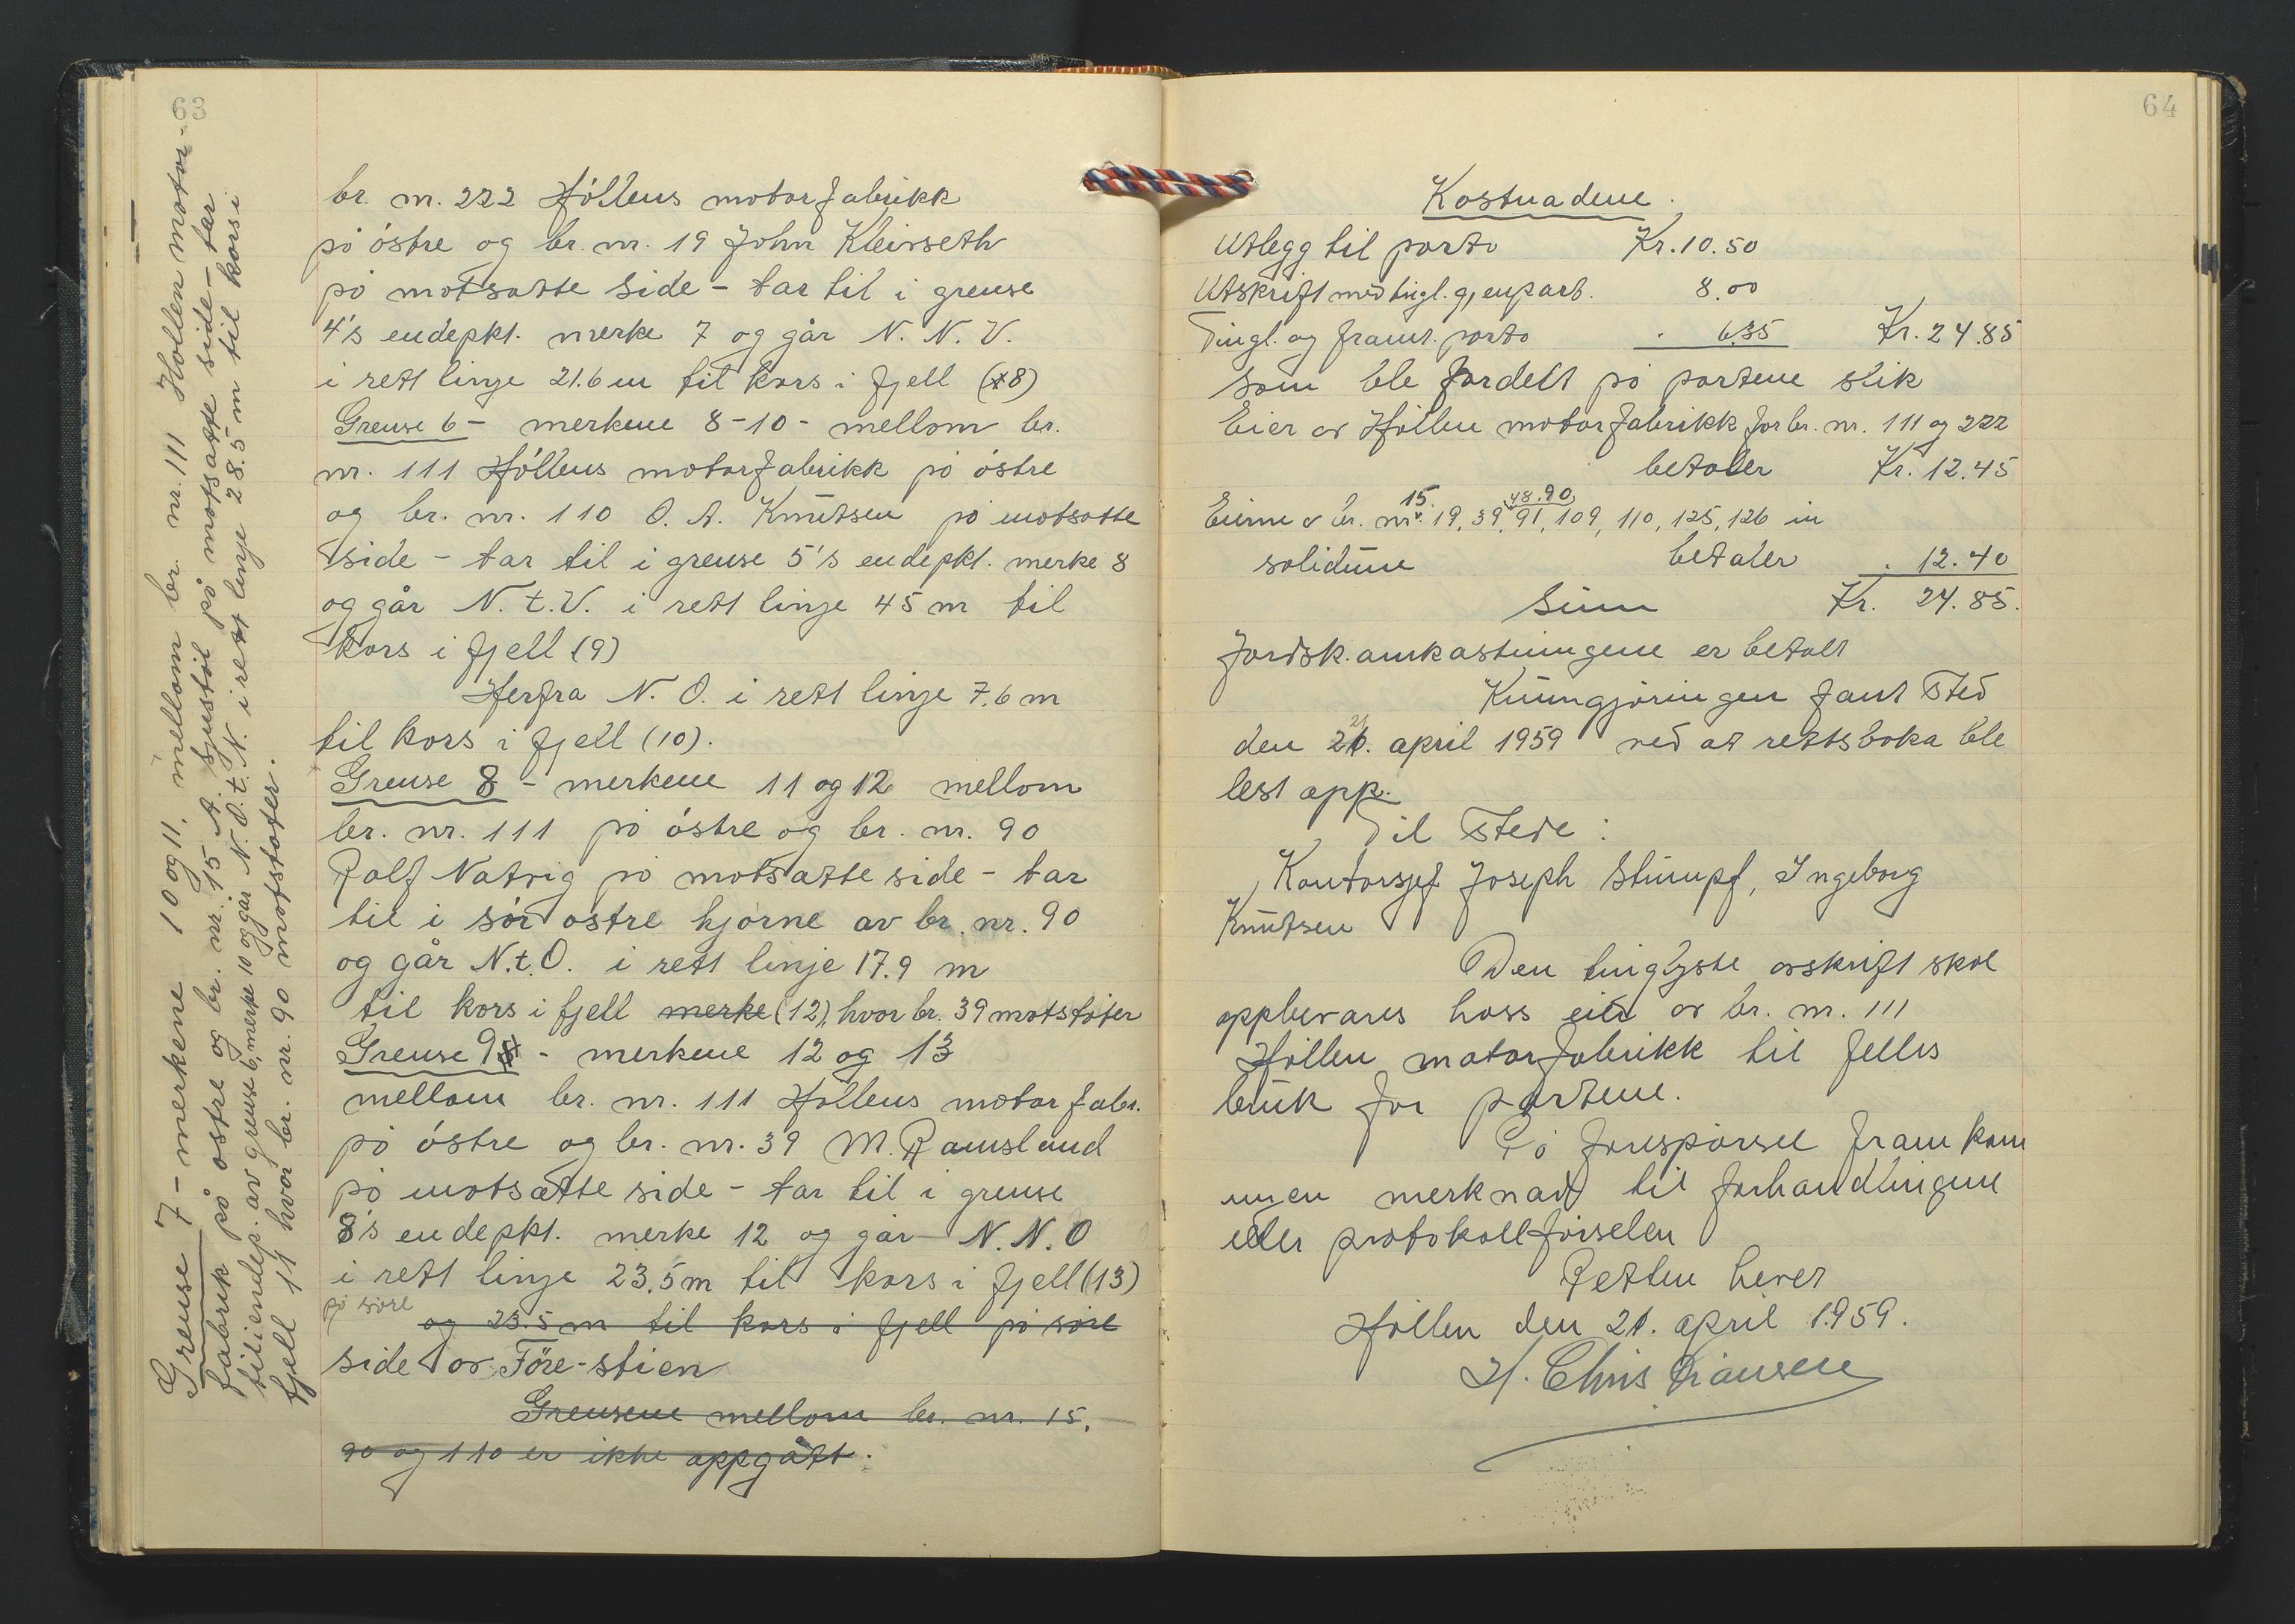 63
br. nr. 222 Höllens motorfabrikk
på östre og br. nr. 19 John Kleivseth
på motsatte side - tar til i grense
4's endepkt. merke 7 og går N. N. V.
i rett linje 21.6 m til kors i fjell (8)
Grense 6 - merkene 8-10 - mellom br.
nr. 111 Höllens motorfabrikk på östre
og br. nr. 110 O. A. Knutsen på motsatte
side - tar til i grense 5's endepkt. merke 8
og går N. t. V. i rett linje 45 m til
kors i fjell (9)
Herfra N. O. i rett linje 7.6 m
til kors i fjell (10).
Grense 8 - merkene 11 og 12 mellom
br. nr. 111 på östre og br. nr. 90
Ralf Natvig på motsatte side - tar
til i sör östre hjörne av br. nr. 90
og går N.t.O. i rett linje 17.9 m
til kors i fjell merke (12), hvor br. 39 motstöter
Grense 9 - merkene 12 og 13
mellom br. nr. 111 Höllens motorfabr.
på östre og br. nr. 39 M. Ramsland
på motsatte side - tar til i grense
8's endepkt. merke 12 og går N. N. O
i rett linje 23.5 m til kors i fjell (13)
på söre
og 23.5 m til kors i fjell på söre
side av Före-stien
Grensene mellom br. nr. 15,
90 og 110 er ikke oppgått.
Grense 7 - merkene 10 og 11, mellom br. nr. 111 Hollen motor-
fabrik på östre og br. nr. 15 A. på motsatte side - tar
til i endep. av grense 6, merke 10 og går N.O.t.N. i rett linje 28.5 m til kors i
fjell 11 hvor br. nr. 90 motstöter.
64
Kostnadene.
Utlegg til porto Kr. 10.50
Utskrift med tingl. gjenpart. 8.00
Tingl. og framt. porto . 6.35 Kr. 24.85
som ble fordelt på partene slik
Eier av Höllen motorfabrikk for br. nr. 111 og 222
betaler Kr. 12.45
15. 48.90
Eierne av br. nr. 19, 39, 91, 109, 110, 125, 126 in
solidum betaler . 12.40
Sum Kr. 24.85.
Jordsk.omkostningene er betalt
Kunngjöringen fant sted
den 21. april 1959 ved at rettsboka ble
lest opp.
Til stede:
Kontorsjef Joseph Stumpf, Ingeborg
Knutsen
Den tinglyste avskrift skal
oppbevares hoss eier av br. nr. 111
Höllen motorfabrikk til felles
bruk for partene.
På forespörsel fram kom
ingen merknad til forhandlingene
eller protokollförselen
Retten hevet
Höllen den 21. april 1959.
H. Christiansen